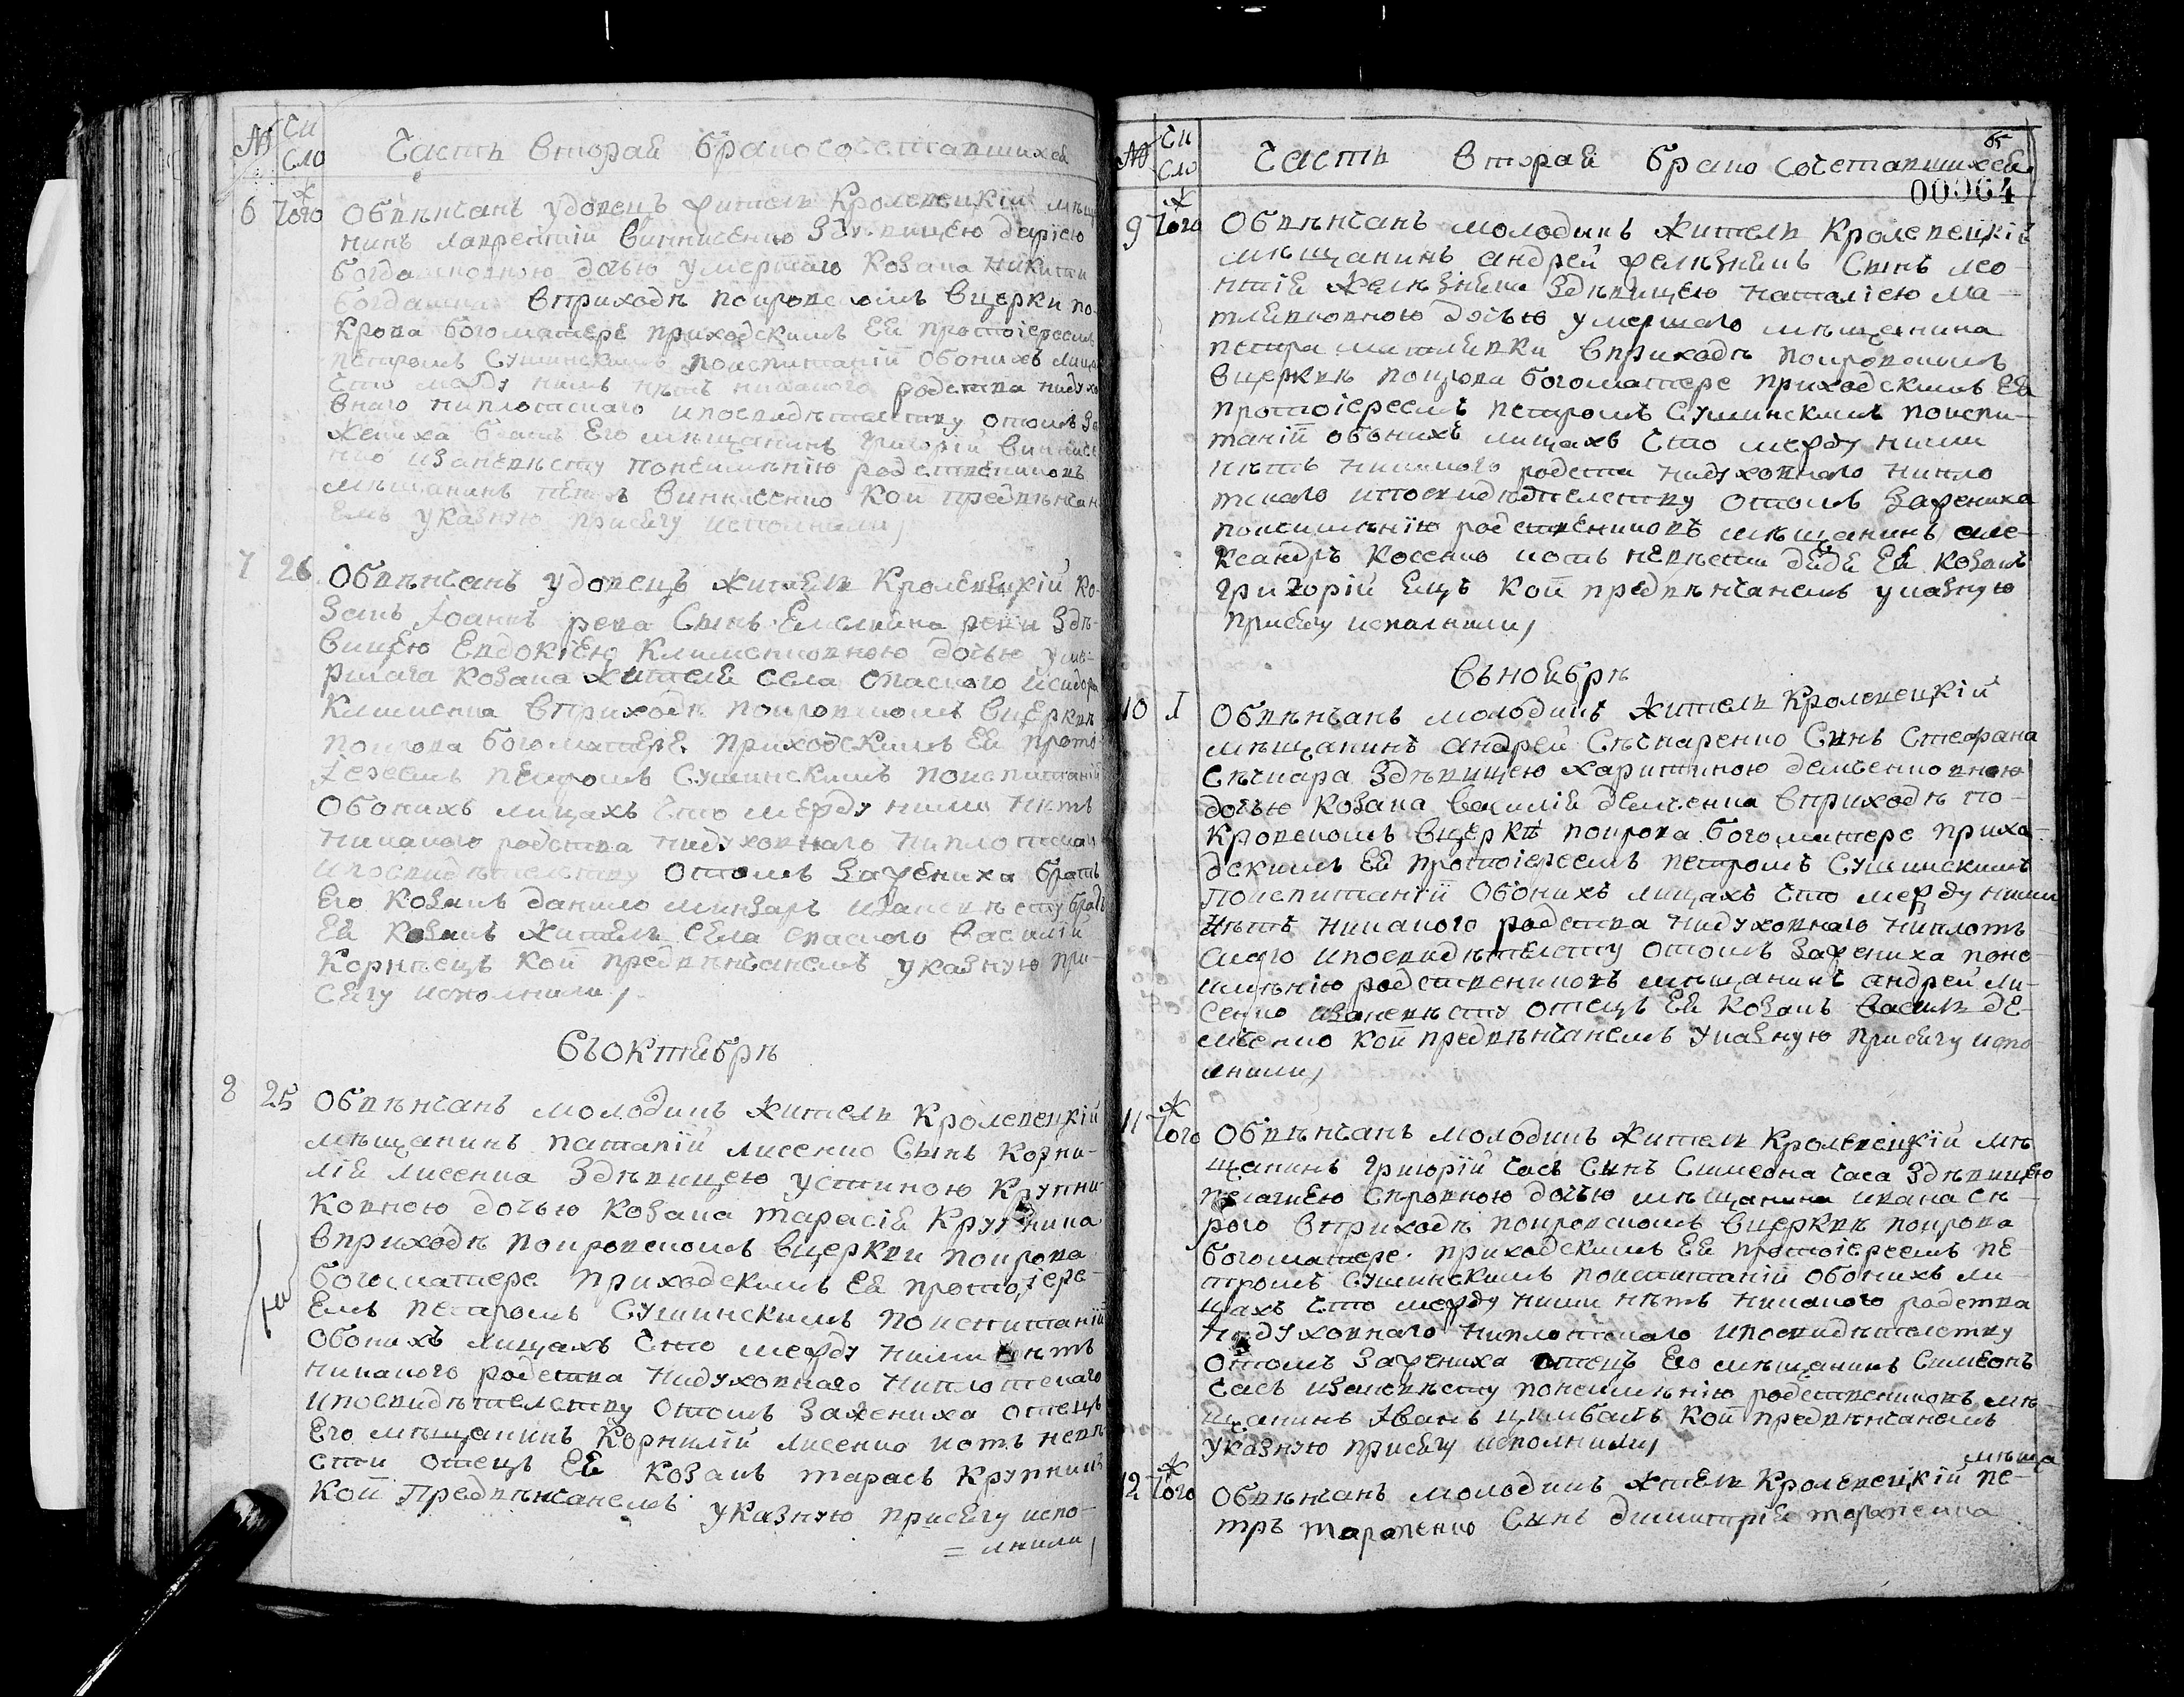 № Чи
сло Часть вторая бракосочетавшихся
6 того ж Обвѣнчанъ удовецъ житель Кролевецкій мѣща
нинъ Лаврентій Винниченко здѣвицею Даріею
Богдановною дочью умершаго козака Никиты
Богдана вприходѣ покровскомъ вцеркви по-
крова богоматере приходскимъ ея протоіереемъ
петромъ Сушинскимъ поиспитаніи обоихъ лицахъ
Что между ними нѣтъ никакого родства нидухо
внаго ниплотскаго ипосвидѣтелству отомъ за
жениха братъ Его мѣщанинъ григорій Винниче
нко изаневѣсту понеимѣнію родственниковъ
мѣщанинъ Винниченко кои предвѣнчан
емъ указную присягу исполнили,
7 26 Обвѣнчанъ удовецъ житель Кролевецкій ко-
закъ Іоаннъ рева Сынъ Емелияна ревы здѣ-
вицею Евдокіею Клименковною дочью уме-
ршаго козака жителя села спаского исидора
Клименка вприходѣ покровскомъ вцерквѣ
покрова богоматере приходскимъ ея прото-
іереемъ петромъ Сушинскимъ поиспитаніи
обоихъ лицахъ Что между ними нѣтъ
никакого родства нидуховнаго ниплотскаго
ипосвидѣтелству отомъ зажениха братъ
Его козакъ данило изаневѣсту братъ
Ея козакъ житель села спаского василій
Корнѣецъ кои предвѣнчанемъ указную при-
сягу исполнили,
Съоктября
8 25 Обвѣнчанъ молодикъ житель Кролевецкій
мѣщанинъ патапій лисенко Сынъ Корни-
лія лисенка здѣвицею устиною Крупни-
ковною дочью козака тарасія Крупника
вприходѣ покровскомъ вцеркви покрова
богоматере приходскимъ ея протоіере-
емъ петромъ Сушинскимъ поиспитаніи
обоихъ лицахъ Что между ними нѣтъ
никакого родства нидуховнаго ниплотскаго
ипосвидѣтелству отомъ зажениха отецъ
Его мѣщанинъ Корнилій лисенко иотъ невѣ
сти отецъ ея козакъ тарасъ Крупникъ
кои предвѣнчанемъ указную присягу испо-
= лнили,
№ Чи
сло Часть вторая бракосочетавшихся
65
00064
9 того ж Обвѣнчанъ молодикъ житель Кролевецкій
мѣщанинъ андрей желѣзнякъ Сынъ лео-
нтія желѣзняка здѣвицею наталіею ма-
тлѣвковною дочью умершаго мѣщанина
петра матлѣвки вприходѣ покровскомъ
вцерквѣ покрова богоматере приходскимъ ея
протоіереемъ петромъ Сушинскимъ поиспи-
таніи обоихъ лицахъ Что между ними
нѣтъ никакого родства нидуховнаго нипло
тскаго ипосвидѣтелству отомъ зажениха
понеимѣнію родственниковъ мѣщанинъ але-
ксандръ Косенко иотъ невѣсти дядя ея козакъ
григорій Ецъ кои предвѣнчанемъ указную
присягу исполнили,
Съноября
10 1 Обвѣнчанъ молодикъ житель Кролевецкій
мѣщанинъ андрей Сѣчкаренко Сынъ Стефана
Сѣчкара здѣвицею харитиною демченковною
дочью козака василія демченка вприходѣ по-
кровскомъ вцерквѣ покрова богоматере прихо-
дскимъ ея протоіереемъ петромъ Сушинскимъ
поиспитаніи обоихъ лицахъ Что между ними
нѣтъ никакого родства нидуховнаго ниплотъ
скаго ипосвидѣтелству отомъ зажениха поне-
имѣнію родственниковъ мѣщанинъ андрей ли-
сенко изаневѣсту отецъ ея козакъ василь де-
мченко кои предвѣнчанемъ указную присягу испо
лнили,
11 того ж Обвѣнчанъ молодикъ житель Кролевецкій мѣ
щанинъ григорій Часъ Сынъ Симеона Часа здѣвицею
пелагиею Сѣровною дочью мѣщанина ивана Сѣ-
рого вприходѣ покровскомъ вцерквѣ покрова
богоматере приходскимъ ея протоіереемъ пе-
тромъ Сушинскимъ поиспитаніи обоихъ ли-
цахъ Что между ними нѣтъ никакого родства
нидуховнаго ниплотскаго ипосвидѣтелству
отомъ зажениха отецъ Его мѣщанинъ Симеонъ
Часъ изаневѣсту понеимѣнію родственниковъ мѣ-
щанинъ Іванъ цимбалъ кои предвѣнчанемъ
указную присягу исполнили,
12 того ж Обвѣнчанъ молодикъ житель Кролевецкій мѣща пе-
тръ тарасенко Сынъ димитрія тарасенка